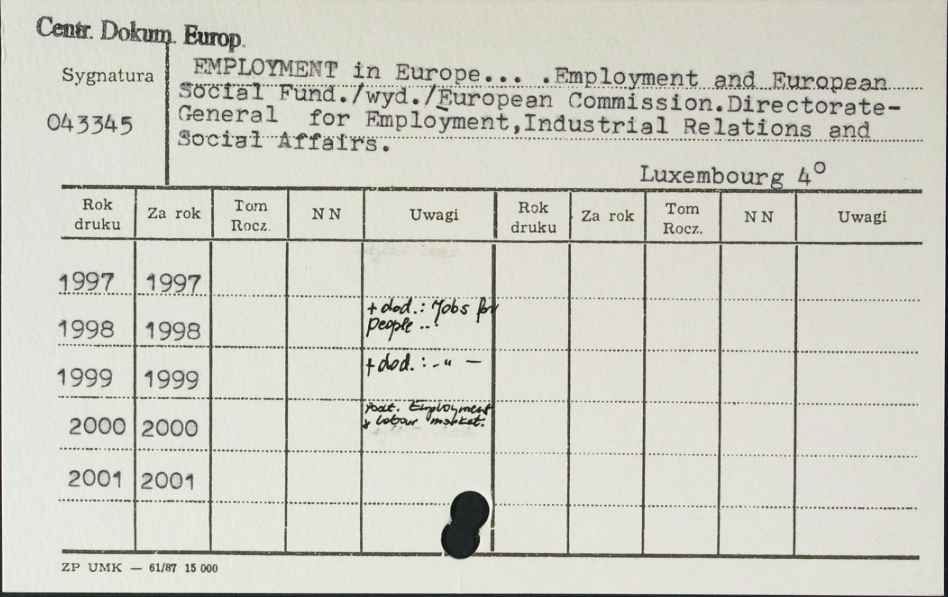 Centr. Dokum. Europ.
Sygnatura
043345
EMPLOYMENT in Europe... .Employment and European
Social Fund./wyd./European Commission.Directorate-
General for Employment,Industrial Relations and
Social Affairs.
Luxembourg 4°
Rok druku Za rok Tom Rocz. NN Uwagi Rok druku Za rok Tom Rocz. NN Uwagi
1997 1997
1998 1998 + dod.: Jobs for
people ...
1999 1999 + dod.: -"-
2000 2000 Employment
labour market.
2001 2001
ZP UMK — 61/87 15 000